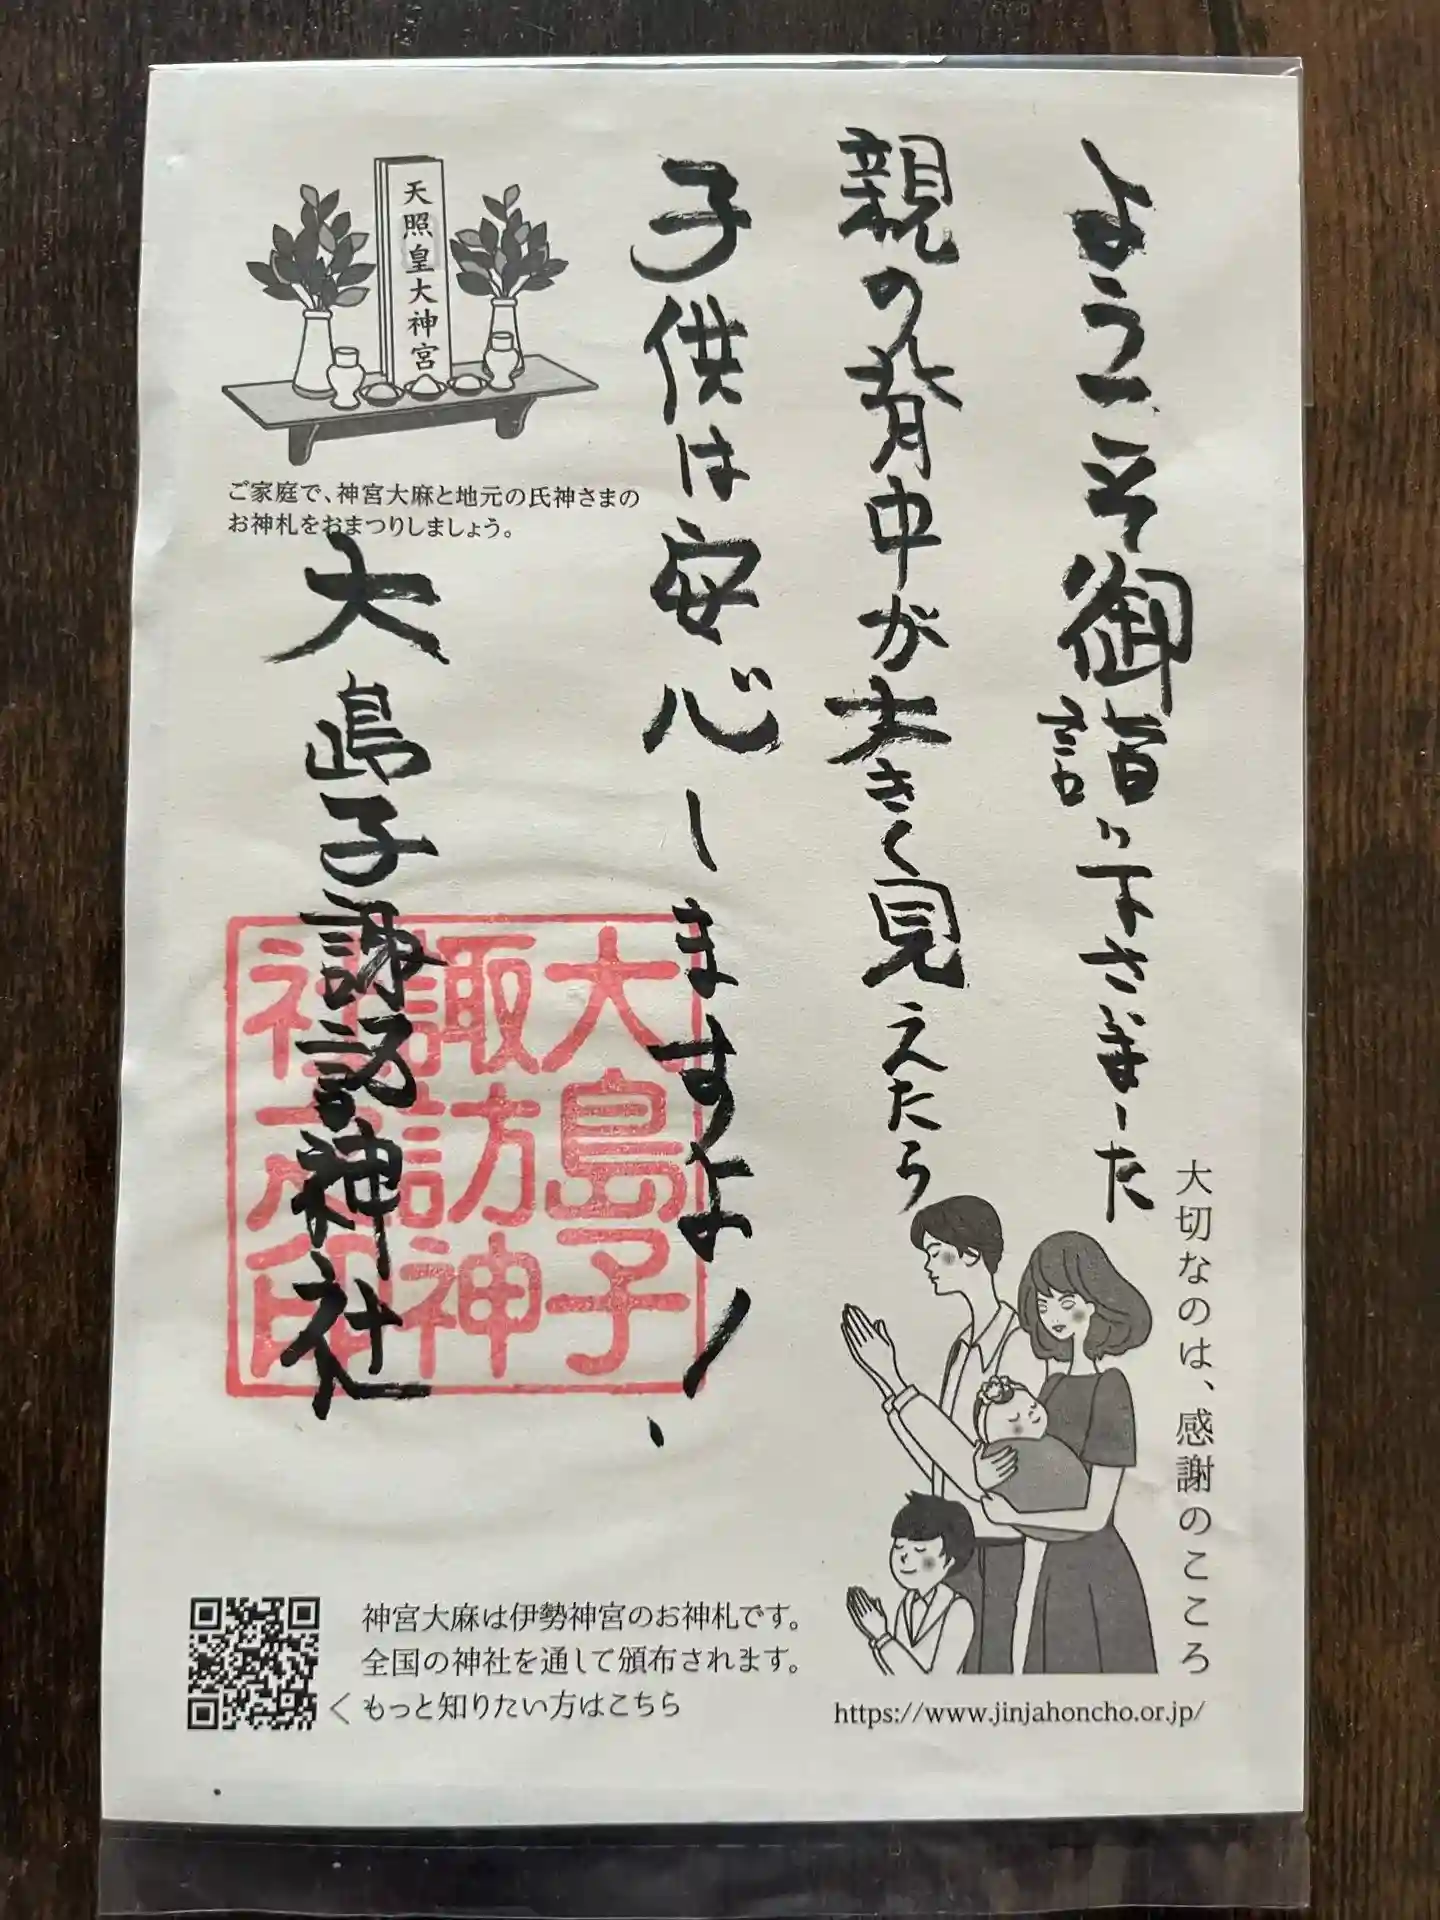 ようこそ御詣り下さいました
親の背中が大きく見えたら
子供は安心しますよ!、
大島子諏訪神社
大島子
諏訪神
社之印
天照皇大神宮
ご家庭で、神宮大麻と地元の氏神さまの
お神札をおまつりしましょう。
大切なのは、感謝のこころ
神宮大麻は伊勢神宮のお神札です。
全国の神社を通して頒布されます。
＜もっと知りたい方はこちら
https://www.jinjahoncho.or.jp/